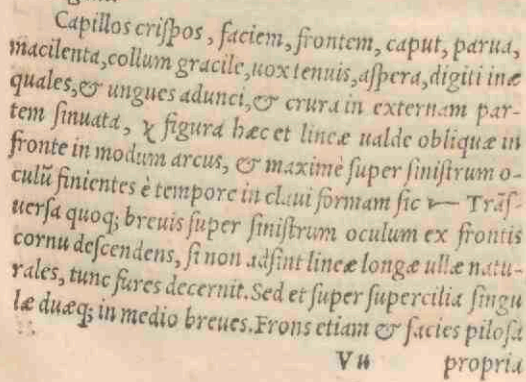 Capillos crispos, faciem, frontem, caput, parua,
macilenta, collum gracile, uox tenuis, aspera, digiti inæ
quales, & ungues adunci, & crura in externam par-
tem sinuata, χ figura hæc et lineæ ualde obliquæ in
fronte in modum arcus, & maximè super sinistrum o-
culũ finientes è tempore in claui formam sic Trãs-
uersa quoq; breuis super sinistrum oculum ex frontis
cornu descendens, si non adsint lineæ longæ ullæ natu-
rales, tunc fures decernit. Sed et super supercilia singu
læ duæq; in medio breues. Frons etiam & facies pilosa
V ii propria